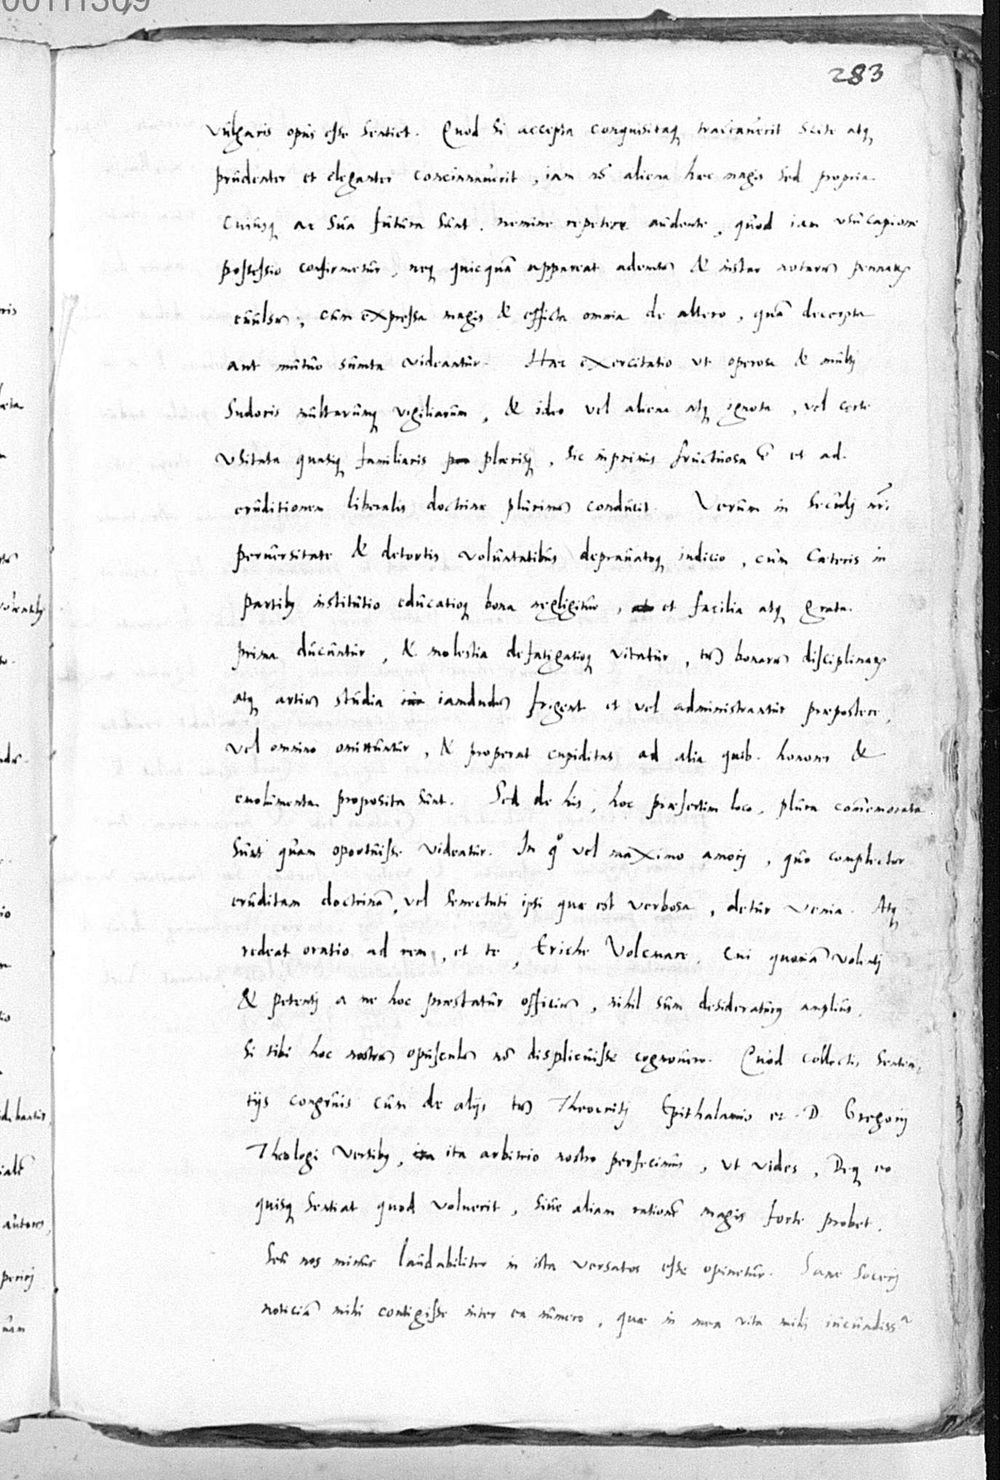 283
vulgaris opus esse sentiet. Quod si accepta conquisitaq tractaverit scite atq
prudenter et eleganter concinnaverit, iam nō aliena haec magis sed propria
cuiusq ac sua futura sunt, nemine repetere audente, quod iam usucapione
possessio confirmetur, neq quicquā appareat ademtū & instar notarū pennarū
evulsū, cum expressa magis & efficta omnia de altero, quā decerpta
aut mutuo sumta videantur. Haec exercitatio ut operosa & multi
sudoris multarumq vigiliarum, & ideo vel aliena atq ignota, vel certe
usitata quasiq familiaris plaerisq, sic inprimis fructuosa ē et ad
eruditionem liberalis doctrinae plurimū conducit. Verum in seculi nr̄i
perversitate & detortis voluntatibus depravatoq iudicio, cum caeteris in
partibus institutio educatioq bona negligitur, et facilia atq grata
prima ducuntur, & molestia defatigatioq vitatur, tū bonarū disciplinarū
atq artiū studia iamdudū frigent et vel administrantur praepostere,
vel omnino omittuntur, & properat cupiditas ad alia quib. honores &
emolumenta proposita sunt. Sed de his, hoc praesertim loco, plura com̄emorata
sunt quam oportuisse videatur. In qo vel maximo amori, quo complector
eruditam doctrinā, vel senectuti ipsi quae est verbosa, detur venia. Atq
redeat oratio ad rem, et te, Eriche Volcmare, cui quoniā volenti
& petenti a me hoc praestatur officiū, nihil sum desideraturus amplius,
si tibi hoc nostrū opusculū nō displicuisse cognovero. Quod collectis senten,
tijs congruis cum de alijs tū Theocriti Epithalamio et D. Gregorij
Theologi versibus, ita arbitrio nostro perfecimus, ut vides, Deq eo
quisq sentiat quod voluerit, sive aliam rationē magis forte probet,
seu nos minus laudabiliter in ista versatos esse opinetur. Sane soceri
noticiā mihi contigisse inter ea numero, quae in mea vita mihi iucundiss a